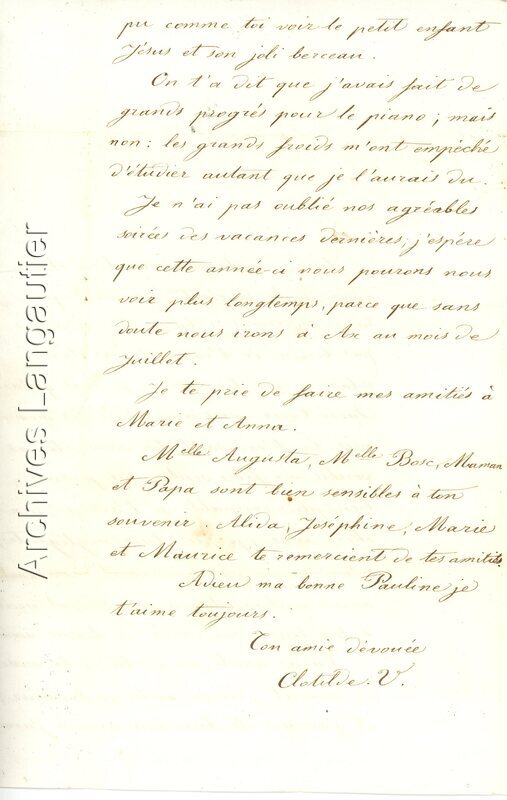 pu comme toi voir le petit enfant
Jésus et son joli berceau.
On t'a dit que j'avais fait de
grands progrés pour le piano ; mais
non : les grands froids m'ont empéché
d'étudier autant que je l'aurais du.
Je n'ai pas oublié nos agréables
soirées des vacances dernières, j'espére
que cette année-ci nous pourons nous
voir plus longtemps, parce que sans
doute nous irons à Ax au mois de
Juillet.
Je te prie de faire mes amitiés à
Marie et Anna.
Melle Augusta, Melle Bosc, Maman
et Papa sont bien sensibles à ton
souvenir. Alida, Joséphine, Marie
et Maurice te remercient de tes amitiés.
Adieu ma bonne Pauline je
t'aime toujours.
Ton amie dévouée
Clotilde. V.
Archives Langautier